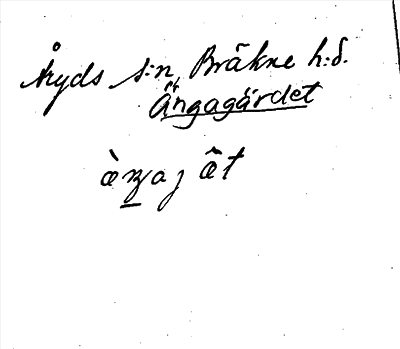 Åryds s:n, Bräkne h:d.
Ängagärdet